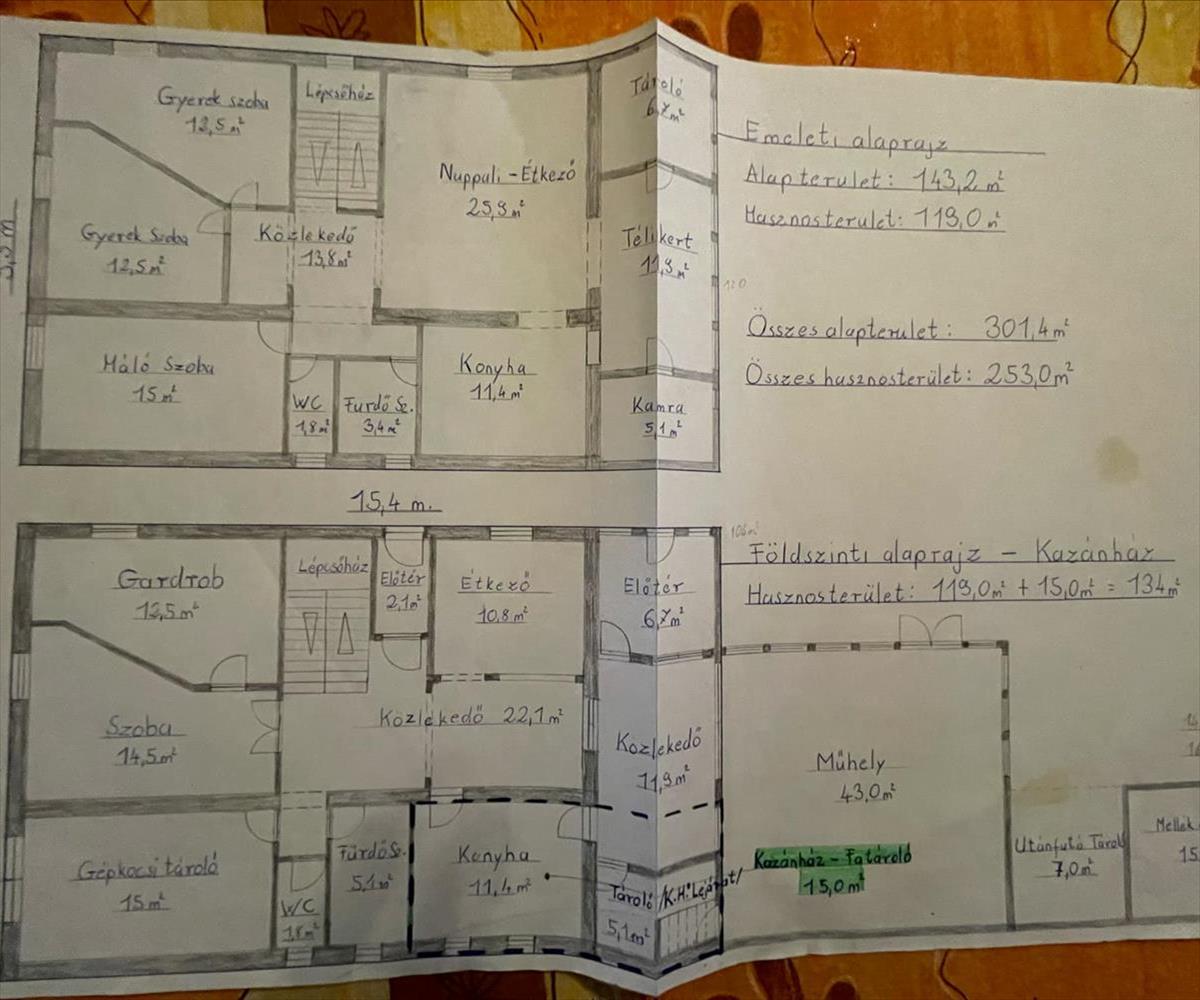 Gyerek szoba
12,5 m²
Lépcsőház
Nappali - Étkező
25,9 m²
Tároló
6,7 m²
Emeleti alaprajz
Alapterület: 143,2 m²
Hasznosterület: 119,0 m²
Gyerek Szoba
12,5 m²
Közlekedő
13,8 m²
Télikert
11,9 m²
Összes alapterület: 301,4 m²
Összes hasznosterület: 253,0 m²
Háló Szoba
15 m²
WC
1,8 m²
Fürdő Sz.
3,4 m²
Konyha
11,4 m²
Kamra
5,1 m²
15,4 m.
Földszinti alaprajz - Kazánház
Hasznosterület: 119,0 m² + 15,0 m² = 134 m²
Gardrob
12,5 m²
Lépcsőház
Előtér
2,1 m²
Étkező
10,8 m²
Előtér
6,7 m²
Szoba
14,5 m²
Közlekedő 22,1 m²
Közlekedő
11,9 m²
Műhely
43,0 m²
Gépkocsi tároló
15 m²
WC
1,8 m²
Fürdő Sz.
5,1 m²
Konyha
11,4 m²
Tároló /K.H. Lejárat/
5,1 m²
Kazánház - Fatároló
15,0 m²
Utánfutó Tároló
7,0 m²
Mellék
15